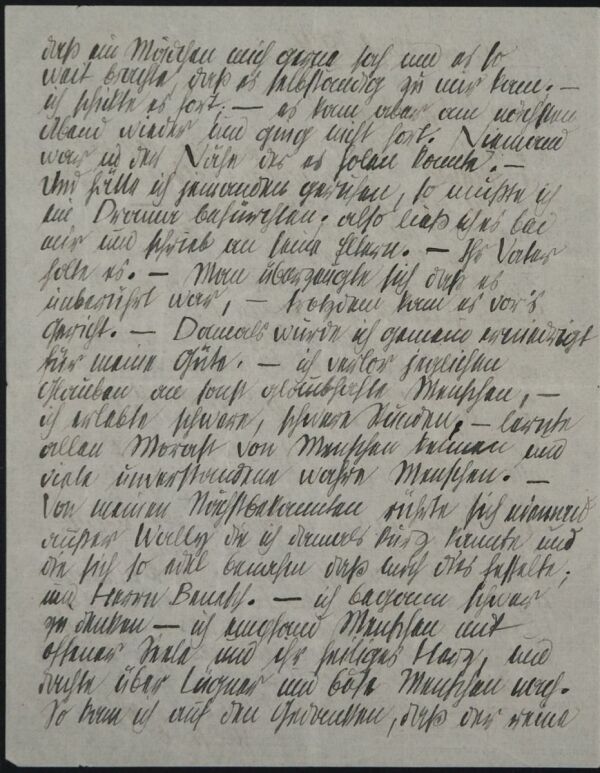 daß ein Mädchen mich gerne sah und es so
weit brachte daß es selbständig zu mir kam. –
ich schickte es fort. – es kam aber am nächsten
Abend wieder und ging nicht fort. Niemand
war in der Nähe der es holen konnte. –
Und hätte ich jemanden gerufen, so müßte ich
ein Drama befürchten. also ließ ich es bei
mir und schrieb an seine Eltern. – Ihr Vater
holte es. – Man überzeugte sich daß es
unberührt war, – trotzdem kam es vor's
Gericht. – Damals wurde ich gemein erniedrigt
für meine Güte. – ich verlor jeglichen
Glauben an sonst glaubhafte Menschen, –
ich erlebte schwere, schwere Stunden, – lernte
allen Morast von Menschen kennen und
viele unverstandene wahre Menschen. –
Von meinen Nächstbekannten rührte sich niemand
außer Wally die ich damals kurz kannte und
die sich so edel benahm daß mich dies fesselte;
und Herrn Benesch. – ich begann schwer
zu denken – ich empfand Menschen mit
offener Seele und ihr heiliges Herz, und
dachte über Lügner und böse Menschen nach.
So kam ich auf den Gedanken, daß der reine